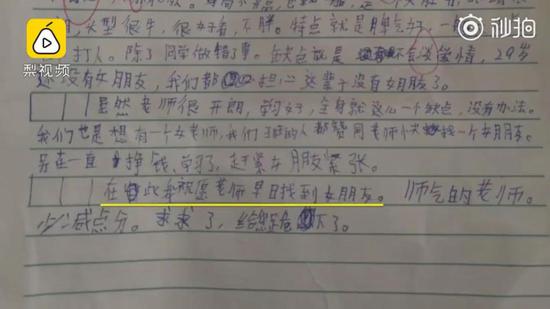 梨视频
秒拍
发型很牛,很好看,不胖。特点就是脾气好,一
打人。除了同学做错了事。缺点就是不会谈爱情,29岁
还没有女朋友,我们都担心这辈子没有女朋友了。
虽然老师很开朗,学习好,全身就这么一个缺点,没有办法。
我们也是想有一个女老师,我们的人都赞同老师快找一个女朋友。
另在一直挣钱、学习了,赶紧女朋友紧张。
在此希愿老师早日找到女朋友。帅气的老师。
少减点分。求求了,给您跪下了。